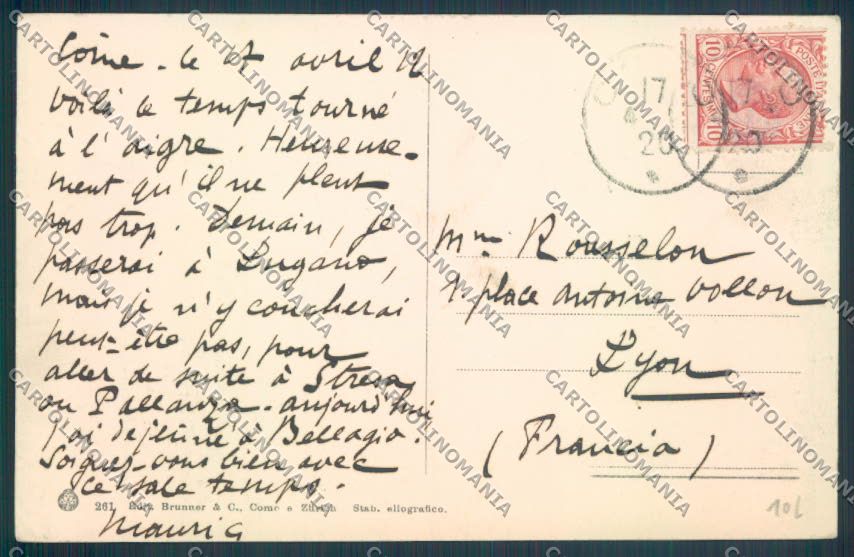 Côme - le 17 avril 12
Voilà le temps tourné
à l'aigre. Heureuse-
ment qu'il ne pleut
pas trop. Demain, je
passerai à Lugano,
mais je n'y coucherai
peut-être pas, pour
aller de suite à Stresa
ou Pallanza. aujourd'hui
j'ai déjeuné à Bellagio.
Soignez-vous bien avec
ce sale temps.
Maurice
Mme Rousselon
place Antoine Vollon
Lyon
(Francia)
261 Brunner & C., Como e Zürich Stab. eliografico.
POSTE
10 CENTESIMI 10
17
20
10L
CARTOLINOMANIA